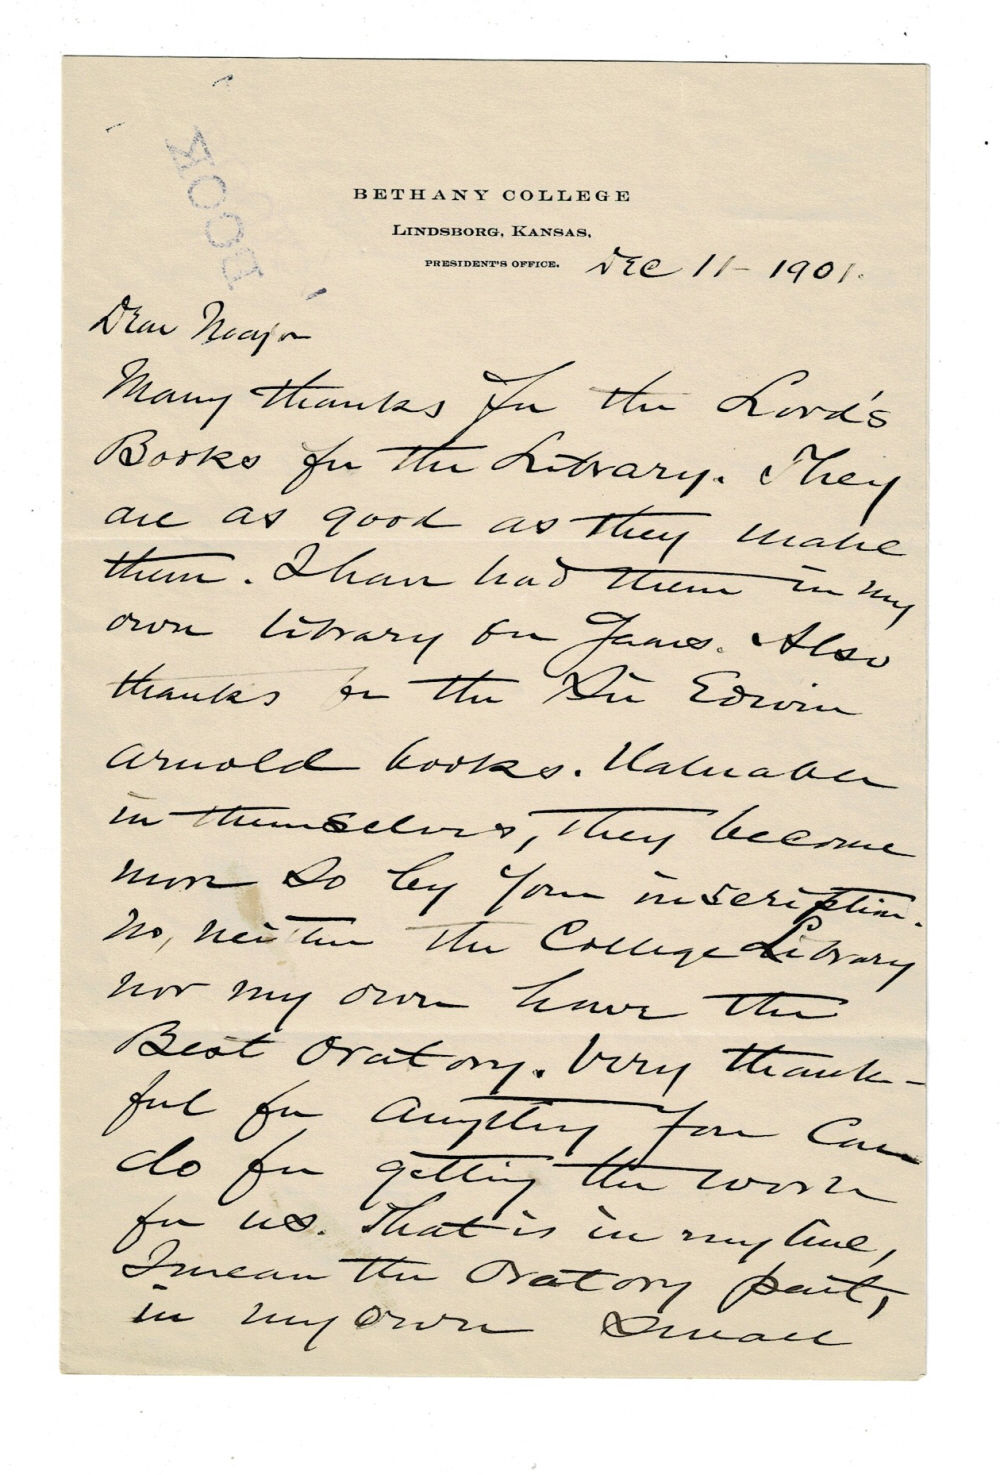 BOOK
BETHANY COLLEGE
LINDSBORG, KANSAS.
PRESIDENT'S OFFICE. Dec 11 - 1901.
Dear Major
Many thanks for the Lord's
Books for the Library. They
are as good as they make
them. I have had them in my
own library for years. Also
thanks for the Sir Edwin
Arnold books. Valuable
in themselves, they become
more so by your inscription.
No, neither the College Library
nor my own have the
Best Oratory. Very thank-
ful for anything you can
do for getting the work
for us. That is in my line,
I mean the Oratory part,
in my own small